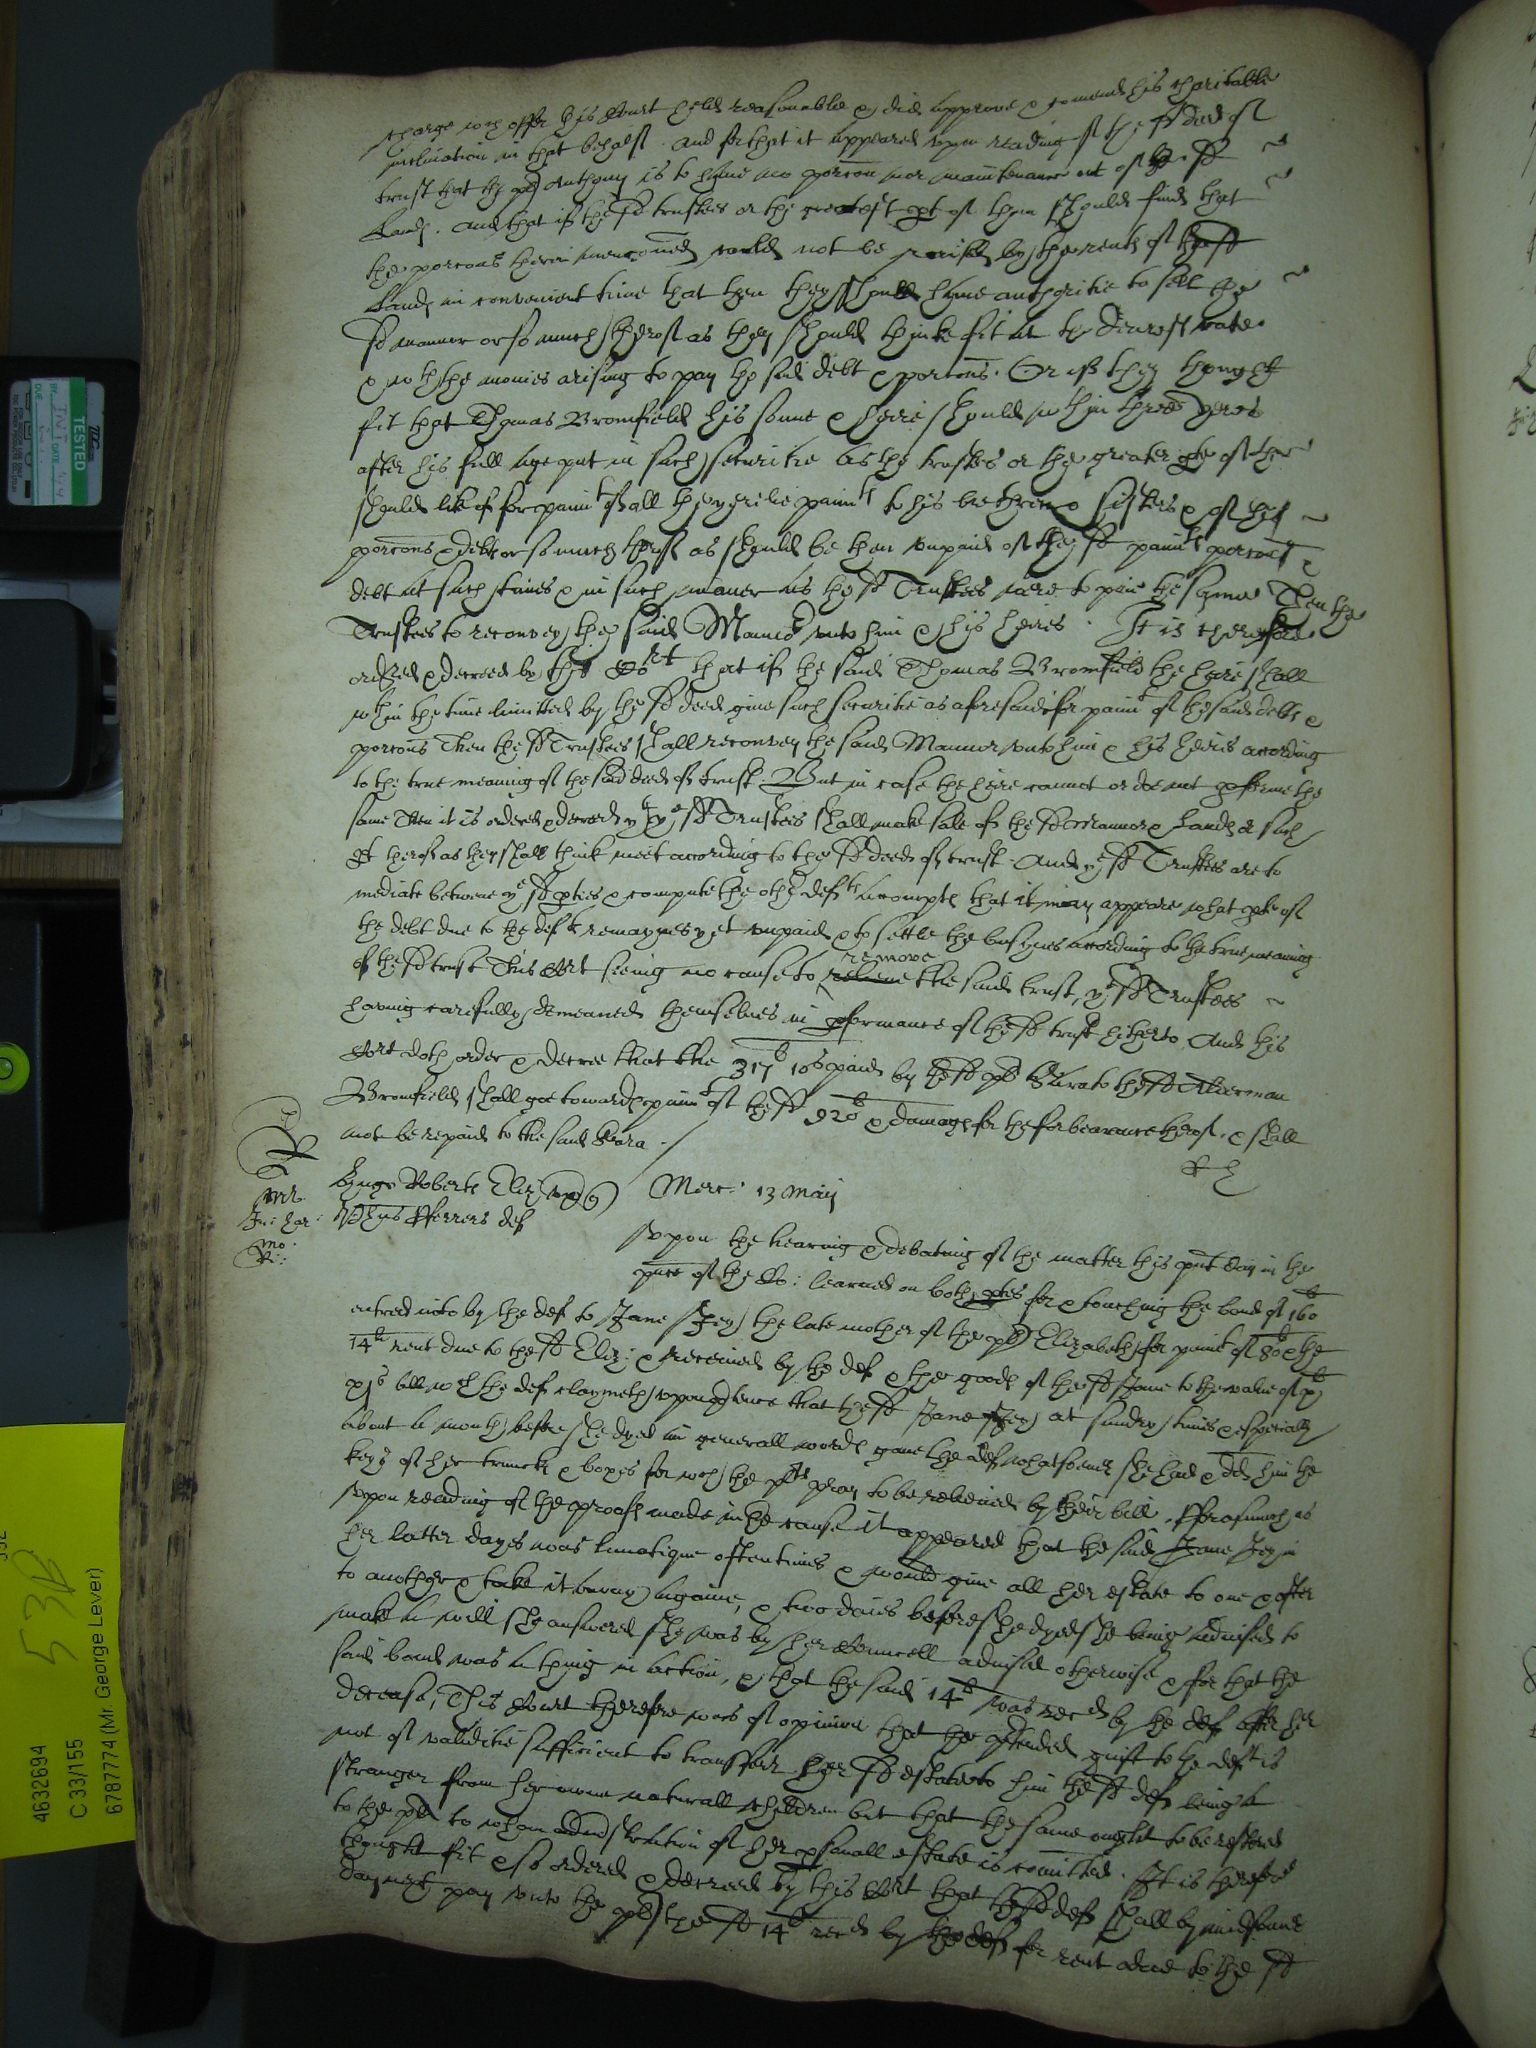 charge wch offer this Court held reasonable & did approve & comend his charitable
inclination in that behalf. And for that it appeared upon reading of the sd deed of
trust that the plt Anthony is to have no porcon nor maintenance out of the sd
Lands. And that if the sd trustees or the greatest pt of them should finde that
the porcons therein menconed could not be raised by the rents of the sd
Lands in convenient time that then they should have authoritie to sell the
sd mannor or so much thereof as they should thinke fit at the dearest rate
& wth the monies arising to pay the said debt & porcons. Or if they thought
fit that Thomas Bromfield his sonne & heire should wthin three yeres
after his full age put in such securitie as the trustees or the greater pte of them
should like of for paimt of all the yerelie paimts to his brethren & sisters & of their
porcons & debt or so much therof as should be then unpaid of the sd paimts porcons &
debt at such times & in such manner as the sd Trustees were to paie the same Then the
Trustees to reconvey the said Mannor unto him & his heires. It is therefore
ordred & decreed by this Cort that if the said Thomas Bromfield the heire shall
wthin the time limitted by the sd deed give such securitie as aforesaid for paimt of the said debts &
porcons Then the sd Trustees shall reconvey the said Mannor unto him & his heires according
to the true meaning of the said deed of trust. But in case the heire cannot or doe not pforme the
same Then it is ordered & decreed yt ye sd Trustees shall make sale of the sd Mannor & Lands or such
pt therof as they shall think meet according to the sd deed of trust. And ye sd Trustees are to
mediate betweene ye sd pties & compute the other defts accompts that it may appeare what pte of
the debt due to the deft remaynes yet unpaid & to settle the busynes according to the true meaning
of the sd trust This Cort seeing no cause to releive remove the said trust, ye sd Trustees
having carefully demeaned themselves in pformance of the sd trust hitherto, And this
Cort doth order & decree that the 317l 10s paid by the sd plt to the sd Alderman
Bromfield shall goe towards paimt of the sd 920l & damages for the forbearance therof, & shall
not be repaid to the said
Hugo Roberts Eliz ux Merc: 13 Maij
Ferrers def
Upon the hearing & debating of the matter this pnt day in the
pnce of the Co: learned on both ptes for & touching the bond of 160l
entred into by the def to Jane Jey the late mother of the plt Elizabeth for paimt of 80l & the
14l rent due to the sd Eliz: & received by the def & the goods of the sd Jane to the value of
all wch the def claymeth upon ptence that the sd Jane Jey at sundry times & especially
about a month before she dyed in generall words gave the def whatsoever she had & dd him the
keys of her truncks & boxes for wch the plts pray to be releived by their bill. Fforasmuch as
upon reading of the proofs made in the cause it appeared that the said Jane Jey in
her latter dayes was lunatique oftentimes & would give all her estate to one & after
to another & take it away againe, & two daies before she dyed she being advised to
make a will she answered she was by her Councell advised otherwise & for that the
said bond was a thing in action, & that the said 14l was recd by the def after her
decease, This Court therefore was of opinion that the ptended guift to the deft is
not of validitie sufficient to transferr her sd estate to him the sd def being a
stranger from her owne naturall children but that the same ought to be restored
to the plts to whom administration of her psonall estate is comitted. It is therefore
thought fit & so ordered & decreed by this Cort that the sd def shall by midsomer
day next pay unto the plts the sd 14l recd by the def for rent due to the sd
TESTED
DATE
DUE
53B
4632694
C 33/155
6787774 (Mr. George Lever)